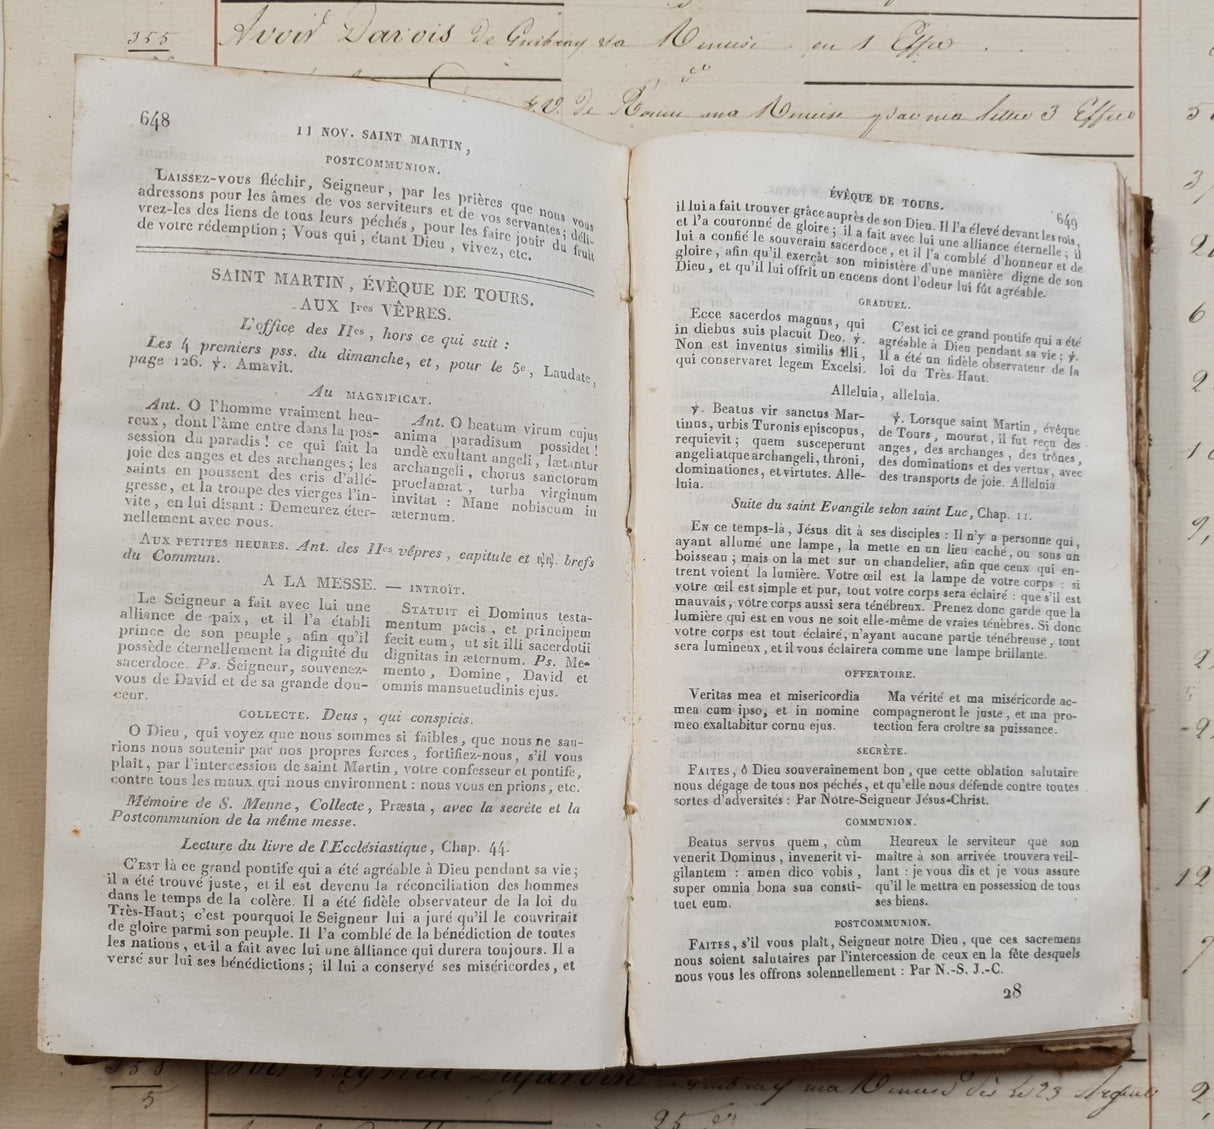 355
Avoir Darois de Guibray sa Remise en 1 Effet
de Rouen ma Remise par ma lettre 3 Effets
648
11 NOV. SAINT MARTIN,
POSTCOMMUNION.
LAISSEZ-VOUS fléchir, Seigneur, par les prières que nous vous
adressons pour les âmes de vos serviteurs et de vos servantes; déli-
vrez-les des liens de tous leurs péchés, pour les faire jouir du fruit
de votre rédemption; Vous qui, étant Dieu, vivez, etc.
SAINT MARTIN, ÉVÊQUE DE TOURS.
AUX Ires VÊPRES.
L'office des IIes, hors ce qui suit :
Les 4 premiers pss. du dimanche, et, pour le 5e, Laudate,
page 126. ℣. Amavit.
Au MAGNIFICAT.
Ant. O l'homme vraiment heu-
reux, dont l'âme entre dans la pos-
session du paradis! ce qui fait la
joie des anges et des archanges; les
saints en poussent des cris d'allé-
gresse, et la troupe des vierges l'in-
vite, en lui disant : Demeurez éter-
nellement avec nous.
Ant. O beatum virum cujus
anima paradisum possidet!
undè exultant angeli, lætantur
archangeli, chorus sanctorum
proclamat, turba virginum
invitat : Mane nobiscum in
æternum.
AUX PETITES HEURES. Ant. des IIes vêpres, capitule et ℟℟. brefs
du Commun.
A LA MESSE. — INTROÏT.
Le Seigneur a fait avec lui une
alliance de paix, et il l'a établi
prince de son peuple, afin qu'il
possède éternellement la dignité du
sacerdoce. Ps. Seigneur, souvenez-
vous de David et de sa grande dou-
ceur.
STATUIT ei Dominus testa-
mentum pacis, et principem
fecit eum, ut sit illi sacerdotii
dignitas in æternum. Ps. Me-
mento, Domine, David et
omnis mansuetudinis ejus.
COLLECTE. Deus, qui conspicis.
O Dieu, qui voyez que nous sommes si faibles, que nous ne sau-
rions nous soutenir par nos propres forces, fortifiez-nous, s'il vous
plaît, par l'intercession de saint Martin, votre confesseur et pontife,
contre tous les maux qui nous environnent : nous vous en prions, etc.
Mémoire de S. Menne, Collecte, Præsta, avec la secrète et la
Postcommunion de la même messe.
Lecture du livre de l'Ecclésiastique, Chap. 44.
C'EST là ce grand pontife qui a été agréable à Dieu pendant sa vie;
il a été trouvé juste, et il est devenu la réconciliation des hommes
dans le temps de la colère. Il a été fidèle observateur de la loi du
Très-Haut; c'est pourquoi le Seigneur lui a juré qu'il le couvrirait
de gloire parmi son peuple. Il l'a comblé de la bénédiction de toutes
les nations, et il a fait avec lui une alliance qui durera toujours. Il a
versé sur lui ses bénédictions; il lui a conservé ses miséricordes, et
ÉVÊQUE DE TOURS.
649
il lui a fait trouver grâce auprès de son Dieu. Il l'a élevé devant les rois,
et l'a couronné de gloire; il a fait avec lui une alliance éternelle; il
lui a confié le souverain sacerdoce, et il l'a comblé d'honneur et de
gloire, afin qu'il exerçât son ministère d'une manière digne de son
Dieu, et qu'il lui offrît un encens dont l'odeur lui fût agréable.
GRADUEL.
Ecce sacerdos magnus, qui
in diebus suis placuit Deo. ℣.
Non est inventus similis illi,
qui conservaret legem Excelsi.
C'est ici ce grand pontife qui a été
agréable à Dieu pendant sa vie; ℣.
Il a été un fidèle observateur de la
loi du Très Haut.
Alleluia, alleluia.
℣. Beatus vir sanctus Mar-
tinus, urbis Turonis episcopus,
requievit; quem susceperunt
angeli atque archangeli, throni,
dominationes, et virtutes. Alle-
luia.
℣. Lorsque saint Martin, évêque
de Tours, mourut, il fut reçu des
anges, des archanges, des trônes,
des dominations et des vertus, avec
des transports de joie. Alleluia.
Suite du saint Evangile selon saint Luc, Chap. 11.
EN ce temps-là, Jésus dit à ses disciples : Il n'y a personne qui,
ayant allumé une lampe, la mette en un lieu caché, ou sous un
boisseau; mais on la met sur un chandelier, afin que ceux qui en-
trent voient la lumière. Votre œil est la lampe de votre corps : si
votre œil est simple et pur, tout votre corps sera éclairé : que s'il est
mauvais, votre corps aussi sera ténébreux. Prenez donc garde que la
lumière qui est en vous ne soit elle-même de vraies ténèbres. Si donc
votre corps est tout éclairé, n'ayant aucune partie ténébreuse, tout
sera lumineux, et il vous éclairera comme une lampe brillante.
OFFERTOIRE.
Veritas mea et misericordia
mea cum ipso, et in nomine
meo exaltabitur cornu ejus.
Ma vérité et ma miséricorde ac-
compagneront le juste, et ma pro-
tection fera croître sa puissance.
SECRÈTE.
FAITES, ô Dieu souverainement bon, que cette oblation salutaire
nous dégage de tous nos péchés, et qu'elle nous défende contre toutes
sortes d'adversités : Par Notre-Seigneur Jésus-Christ.
COMMUNION.
Beatus servus quem, cùm
venerit Dominus, invenerit vi-
gilantem : amen dico vobis,
super omnia bona sua consti-
tuet eum.
Heureux le serviteur que son
maître à son arrivée trouvera veil-
lant : je vous dis et je vous assure
qu'il le mettra en possession de tous
ses biens.
POSTCOMMUNION.
FAITES, s'il vous plaît, Seigneur notre Dieu, que ces sacremens
nous soient salutaires par l'intercession de ceux en la fête desquels
nous vous les offrons solennellement : Par N.-S. J.-C.
28
5